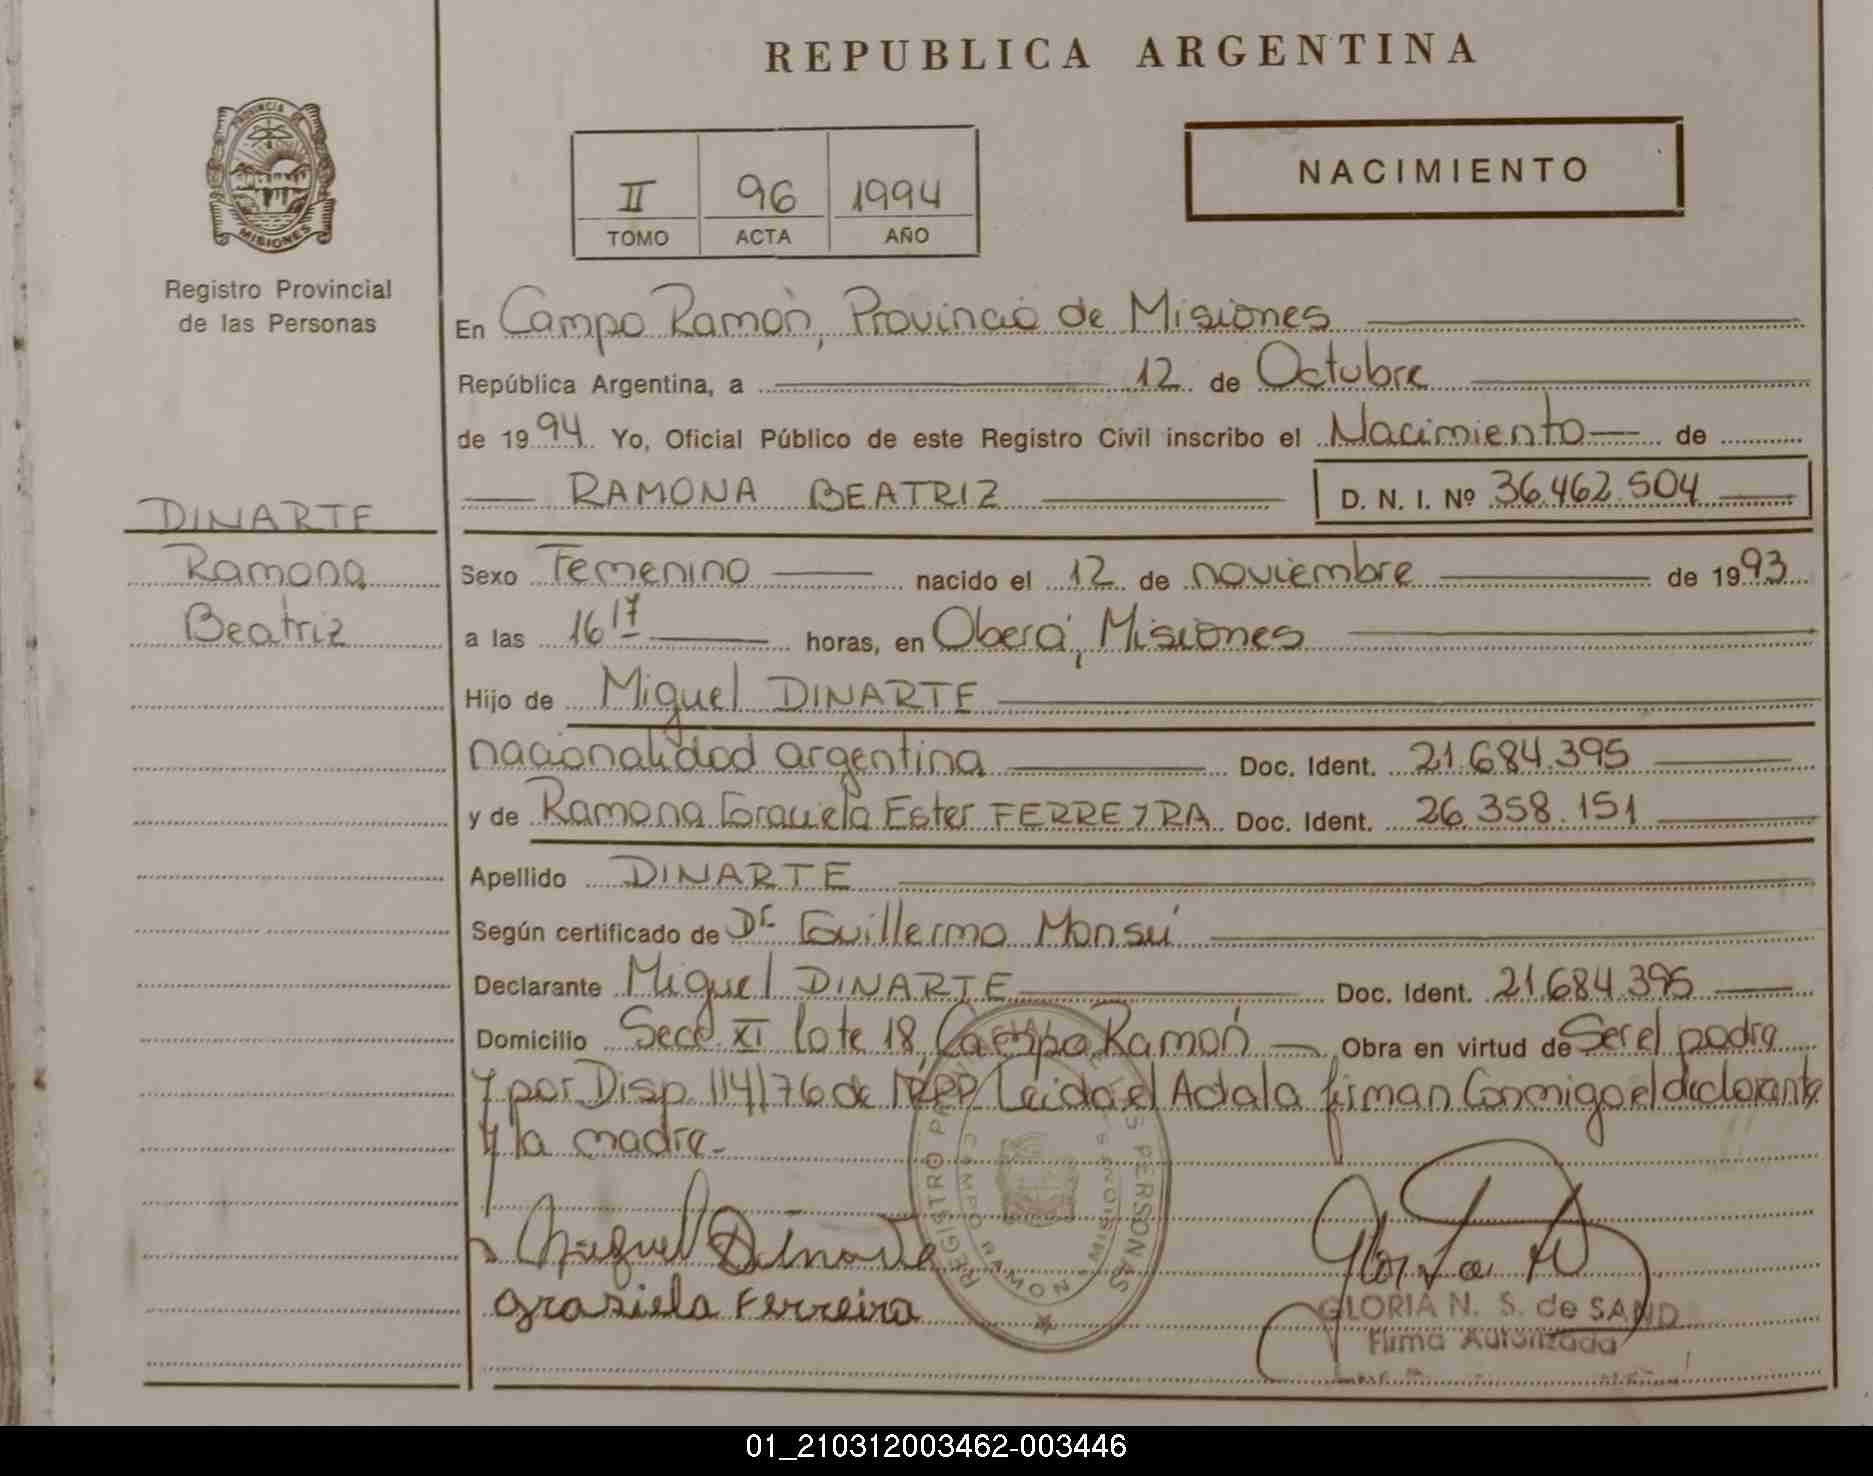 REPUBLICA ARGENTINA
PROVINCIA DE
MISIONES
Registro Provincial
de las Personas
II 96 1994
TOMO ACTA AÑO
NACIMIENTO
En Campo Ramón, Provincia de Misiones
República Argentina, a 12 de Octubre
de 1994 Yo, Oficial Público de este Registro Civil inscribo el Nacimiento de
RAMONA BEATRIZ D. N. I. Nº 36.462.504
DINARTE
Ramona
Beatriz
Sexo Femenino nacido el 12 de noviembre de 1993
a las 16 17 horas, en Oberá, Misiones
Hijo de Miguel DINARTE
nacionalidad argentina Doc. Ident. 21.684.395
y de Ramona Graciela Ester FERREYRA Doc. Ident. 26.358.151
Apellido DINARTE
Según certificado de Dr Guillermo Monsú
Declarante Miguel DINARTE Doc. Ident. 21.684.395
Domicilio Secc. XI lote 18, Campo Ramón Obra en virtud de Ser el padre
y por Disp. 114/76 de RPP. Leida el Acta la firman Conmigo el declarante
y la madre.
REGISTRO PERSONAS
CAMPO RAMON MISIONES
Miguel Dinarte
graziela Ferreira
GLORIA N. S. de SAND
Firma Autorizada
01_210312003462-003446